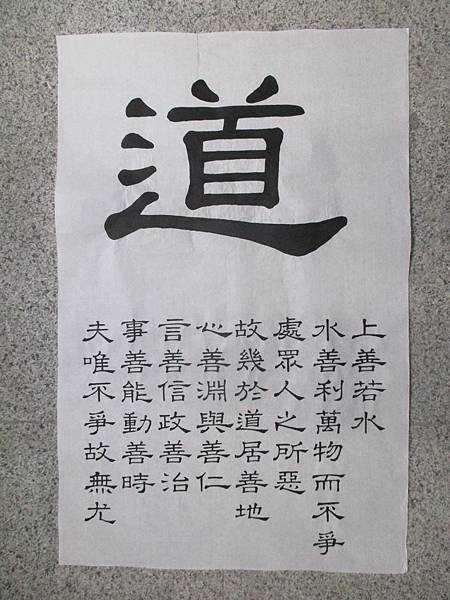 道
上善若水
水善利萬物而不爭
處眾人之所惡
故幾於道居善地
心善淵與善仁
言善信政善治
事善能動善時
夫唯不爭故無尤